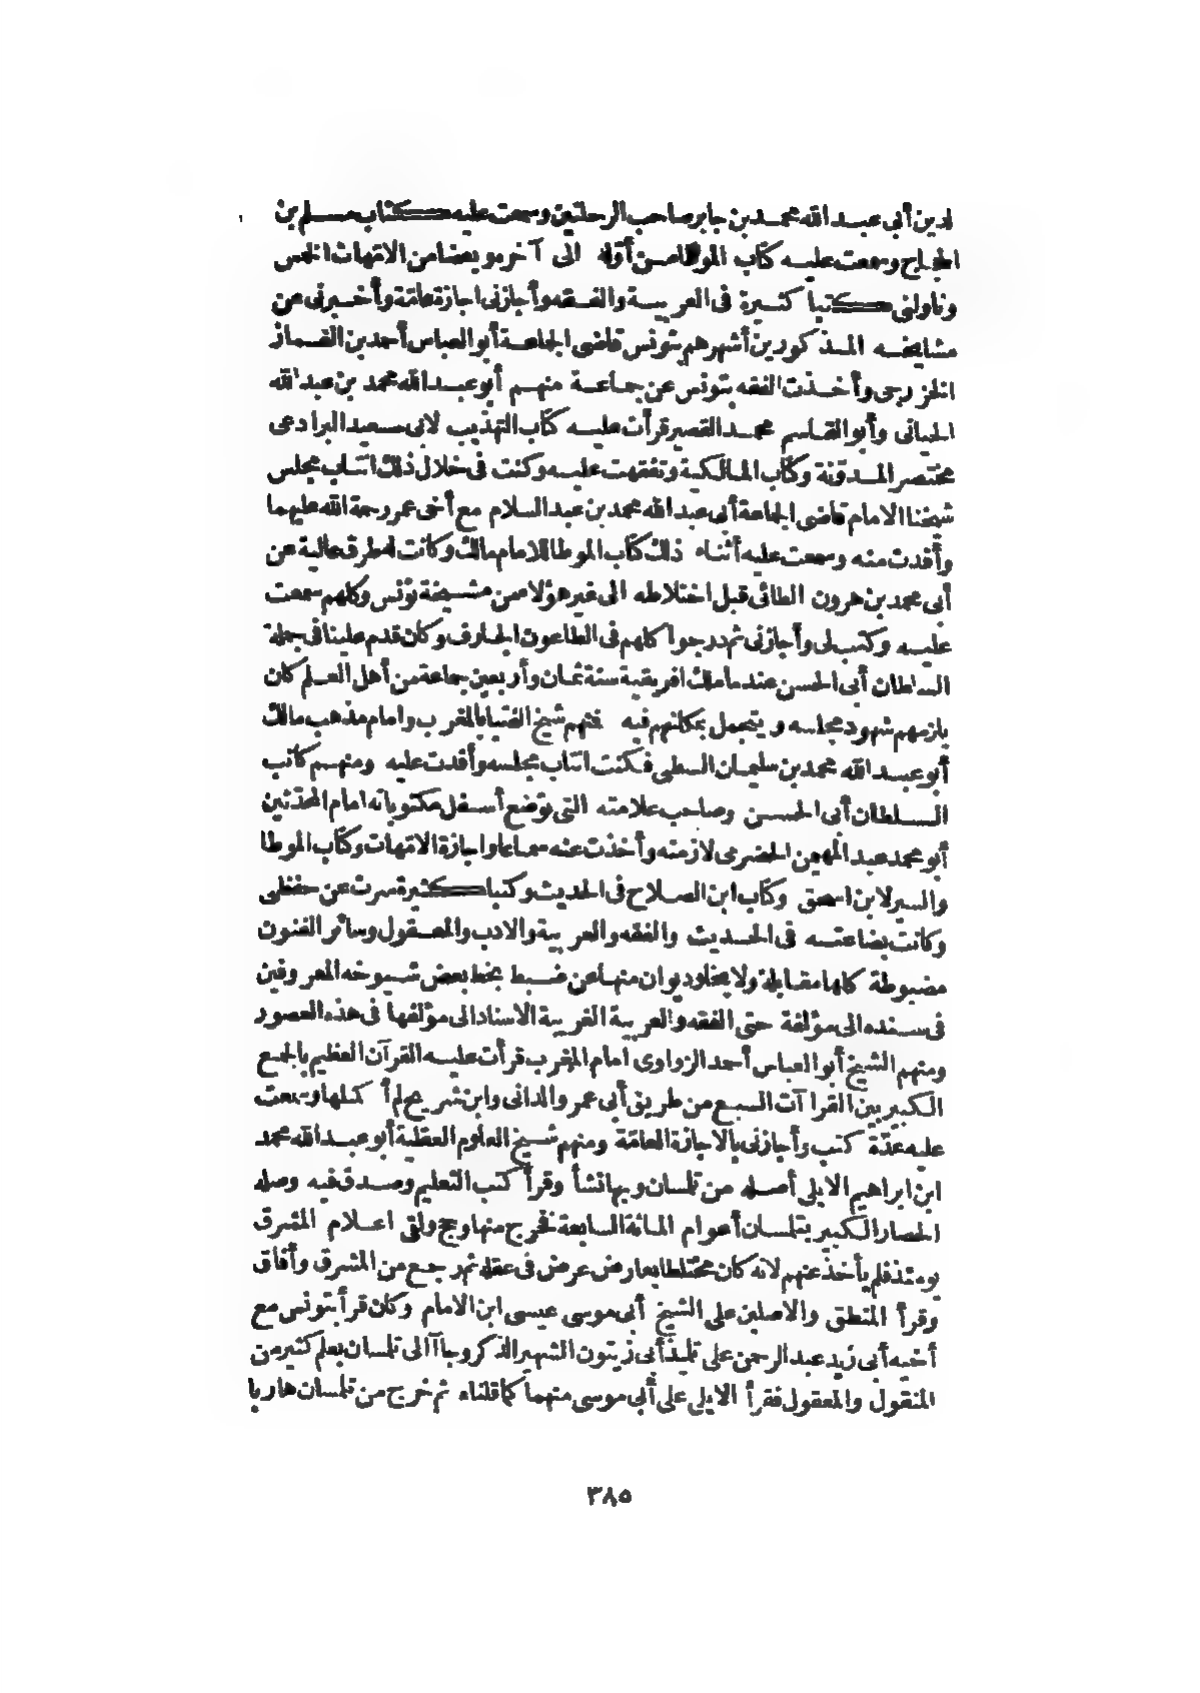 لدين أبي عبد الله محمد بن جابر صاحب الرحلتين وسمعت عليه كتاب مسلم بن
الحجاج وسمعت عليه كتاب الموطا من أوله الى آخره وبعضا من الامهات الخمس
وناولني كتبا كثيرة في العربية والفقه وأجازني اجازة عامة وأخبرني عن
مشايخه المذكورين أشهرهم بتونس قاضى الجماعة أبو العباس أحمد بن الغماز
الخزرجى وأخذت الفقه بتونس عن جماعة منهم أبو عبد الله محمد بن عبد الله
الجيانى وأبو القاسم محمد القصير قرأت عليه كتاب التهذيب لابي سعيد البرادعى
مختصر المدونة وكتاب المالكية وتفقهت عليه وكنت في خلال ذلك انتاب مجلس
شيخنا الامام قاضى الجماعة أبي عبد الله محمد بن عبد السلام مع أخى عمر رحمة الله عليهما
وأفدت منه وسمعت عليه أثناء ذلك كتاب الموطا للامام مالك وكانت له طرق عالية عن
أبي محمد بن هرون الطائى قبل اختلاطه الى غير هؤلاء من مشيخة تونس وكلهم سمعت
عليه وكتب لي وأجازني ثم درجوا كلهم في الطاعون الجارف وكان قدم علينا في جملة
السلطان أبي الحسن عندما ملك افريقية سنة ثمان وأربعين جماعة من أهل العلم كان
يلزمهم شهود مجلسه ويتجمل بمكانهم فيه فمنهم شيخ الفتيا بالمغرب وامام مذهب مالك
أبو عبد الله محمد بن سليمان السطى فكنت انتاب مجلسه وأفدت عليه ومنهم كاتب
السلطان أبي الحسن وصاحب علامته التي توضع أسفل مكتوباته امام المحدثين
أبو محمد عبد المهيمن الحضرمى لازمته وأخذت عنه سماعا واجازة الامهات وكتاب الموطا
والسير لابن اسحق وكتاب ابن الصلاح في الحديث وكتبا كثيرة سرت عن حفظى
وكانت بضاعته في الحديث والفقه والعربية والادب والمعقول وسائر الفنون
مضبوطة كلها مقابلة ولا يخلو ديوان منها عن ضبط بخط بعض شيوخه المعروفين
في سنده الى مؤلفه حتى الفقه والعربية الغريبة الاسناد الى مؤلفها في هذه العصور
ومنهم الشيخ أبو العباس أحمد الزواوى امام المغرب قرأت عليه القرآن العظيم بالجمع
الكبير بين القراآت السبع من طريق أبي عمرو الدانى وابن شريح لم أكملها وسمعت
عليه عدة كتب وأجازني بالاجازة العامة ومنهم شيخ العلوم العقلية أبو عبد الله محمد
ابن ابراهيم الايلي أصله من تلمسان وبها نشأ وقرأ كتب التعليم وصدق فيه وصله
الحصار الكبير بتلمسان أعوام المائة السابعة فخرج منها وحج ولقى اعلام المشرق
يومئذ فلم يأخذ عنهم لانه كان مختلطا بعارض عرض في عقله ثم رجع من المشرق وأفاق
وقرأ المنطق والاصلين على الشيخ أبي موسى عيسى ابن الامام وكان قرأ بتونس مع
أخيه أبي زيد عبد الرحمن على تلميذ أبي زيتون الشهير الذكر وجاآ الى تلمسان بعلم كثير من
المنقول والمعقول فقرأ الايلي على أبي موسى منهما كما قلناه ثم خرج من تلمسان هاربا
٣٨٥